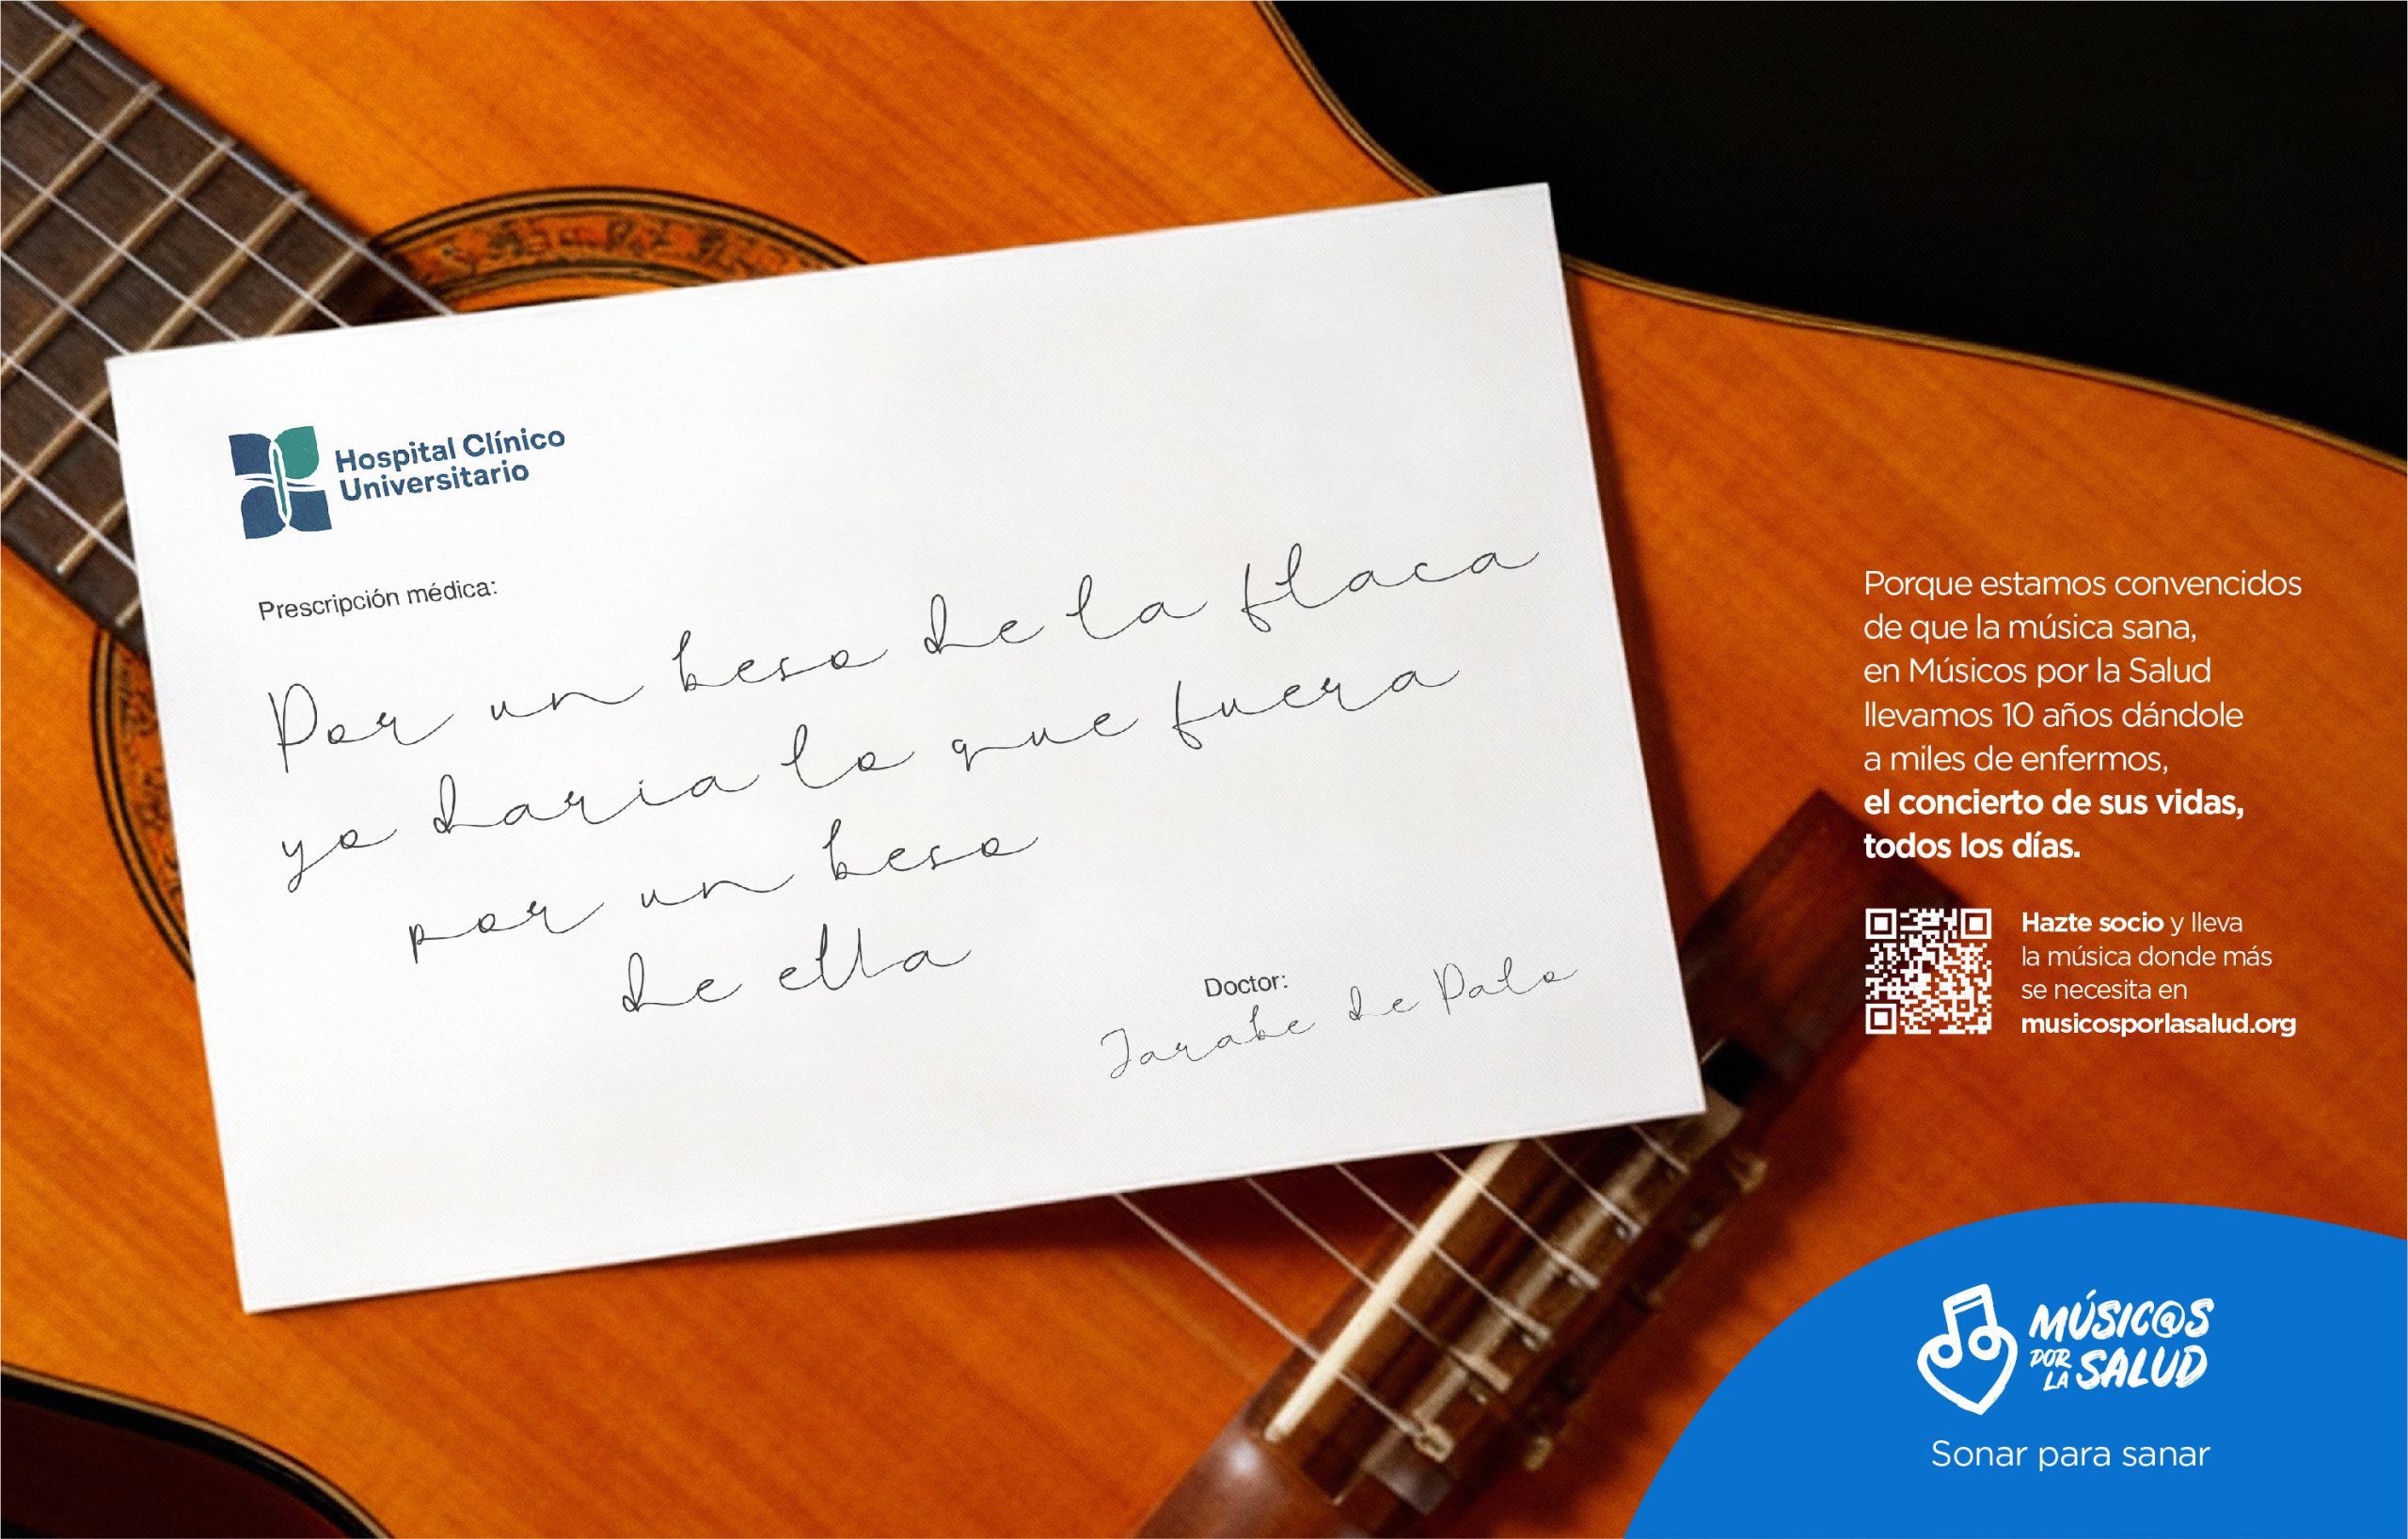 Hospital Clínico
Universitario
Prescripción médica:
Por un beso de la flaca
yo daria lo que fuera
por un beso
de ella
Doctor:
Jarabe de Palo
Porque estamos convencidos
de que la música sana,
en Músicos por la Salud
llevamos 10 años dándole
a miles de enfermos,
el concierto de sus vidas,
todos los días.
Hazte socio y lleva
la música donde más
se necesita en
musicosporlasalud.org
MÚSIC@S
POR LA SALUD
Sonar para sanar